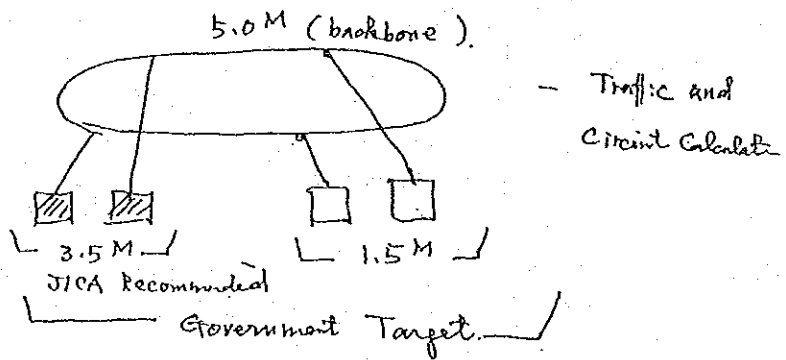 5.0 M (backbone).
- Traffic and
Circuit Calculati
3.5 M
1.5 M
JICA Recommended
Government Target